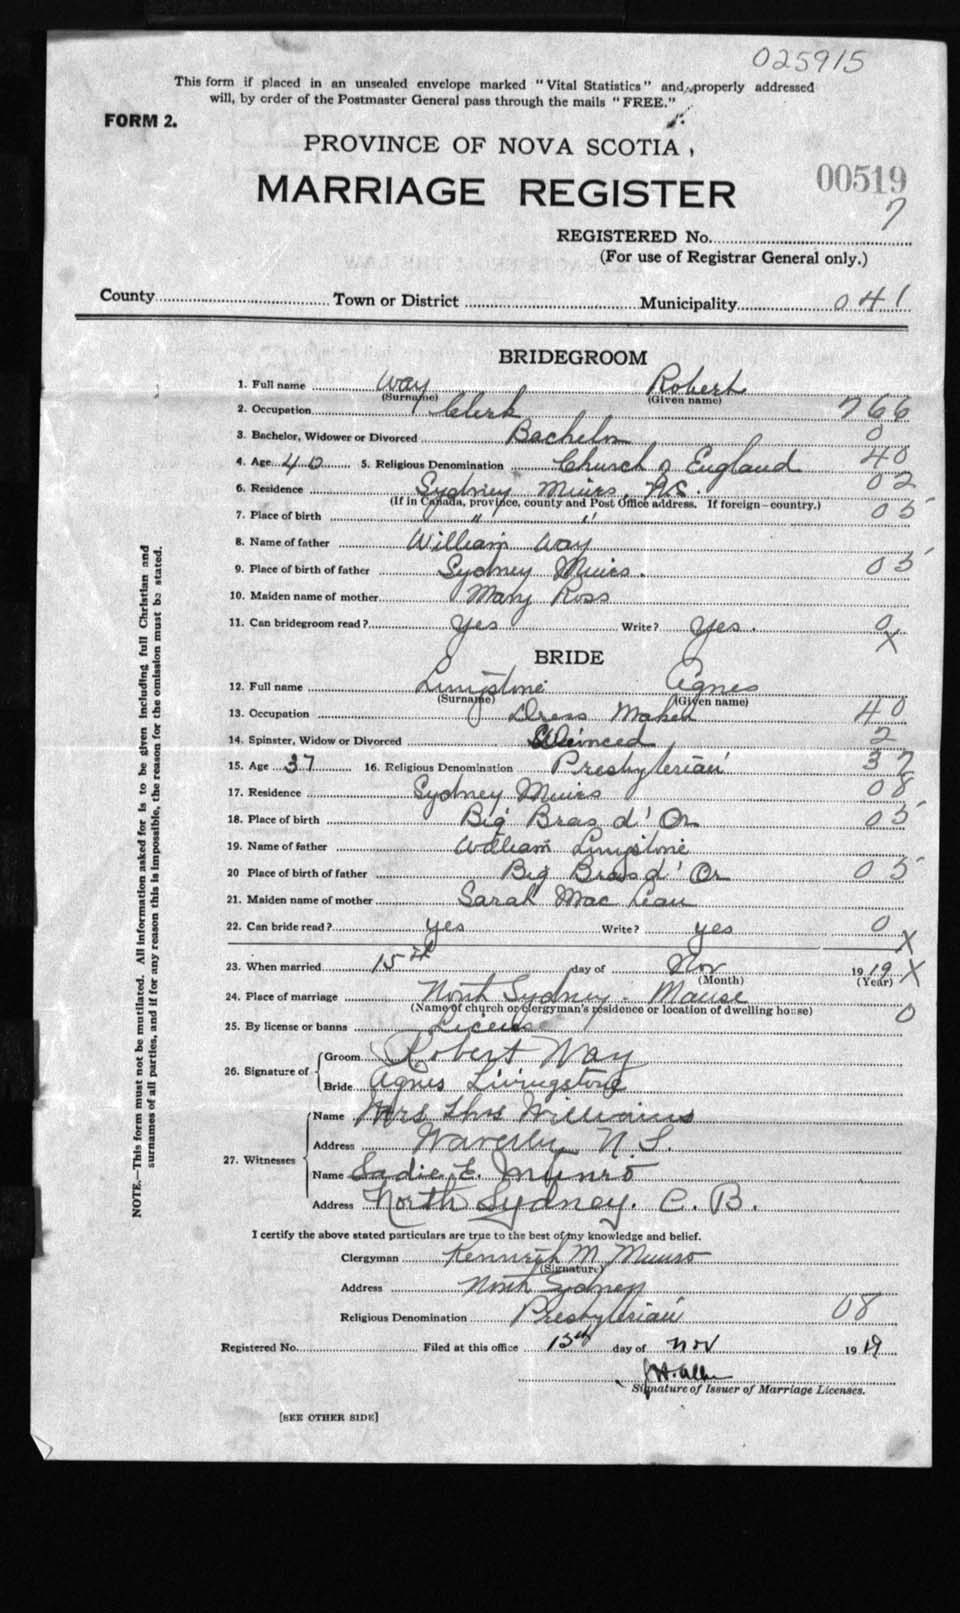 025915
This form if placed in an unsealed envelope marked "Vital Statistics" and properly addressed
will, by order of the Postmaster General pass through the mails "FREE."
FORM 2.
PROVINCE OF NOVA SCOTIA,
MARRIAGE REGISTER
00519
7
REGISTERED No.
(For use of Registrar General only.)
County Town or District Municipality 041
BRIDEGROOM
1. Full name Way Robert
(Surname) (Given name)
2. Occupation Clerk 766
3. Bachelor, Widower or Divorced Bachelor 0
4. Age 40 5. Religious Denomination Church of England 40
6. Residence Sydney Mines, N.S. 02
(If in Canada, province, county and Post Office address. If foreign—country.)
7. Place of birth " " 05
8. Name of father William Way
9. Place of birth of father Sydney Mines. 05
10. Maiden name of mother Mary Ross
11. Can bridegroom read? Yes Write? Yes. 0
X
BRIDE
12. Full name Livingstone Agnes
(Surname) (Given name)
13. Occupation Dress Maker 40
14. Spinster, Widow or Divorced Divorced 2
15. Age 37 16. Religious Denomination Presbyterian 37
17. Residence Sydney Mines 08
18. Place of birth Big Bras d'Or 05
19. Name of father William Livingstone
20 Place of birth of father Big Bras d'Or 05
21. Maiden name of mother Sarah Mac Lean
22. Can bride read? yes Write? yes 0
X
23. When married 15th day of Nov 1919 X
(Month) (Year)
24. Place of marriage North Sydney - Manse
(Name of church or clergyman's residence or location of dwelling house) 0
25. By license or banns License
26. Signature of Groom Robert Way
Bride Agnes Livingstone
27. Witnesses Name Mrs Thos Williams
Address Waverly N.S.
Name Sadie E. Munro
Address North Sydney. C.B.
I certify the above stated particulars are true to the best of my knowledge and belief.
Clergyman Kenneth M. Munro
(Signature)
Address North Sydney
Religious Denomination Presbyterian 08
Registered No. Filed at this office 15th day of Nov 1919
Signature of Issuer of Marriage Licenses.
[SEE OTHER SIDE]
NOTE.—This form must not be mutilated. All information asked for is to be given including full Christian and
surnames of all parties, and if for any reason this is impossible, the reason for the omission must be stated.